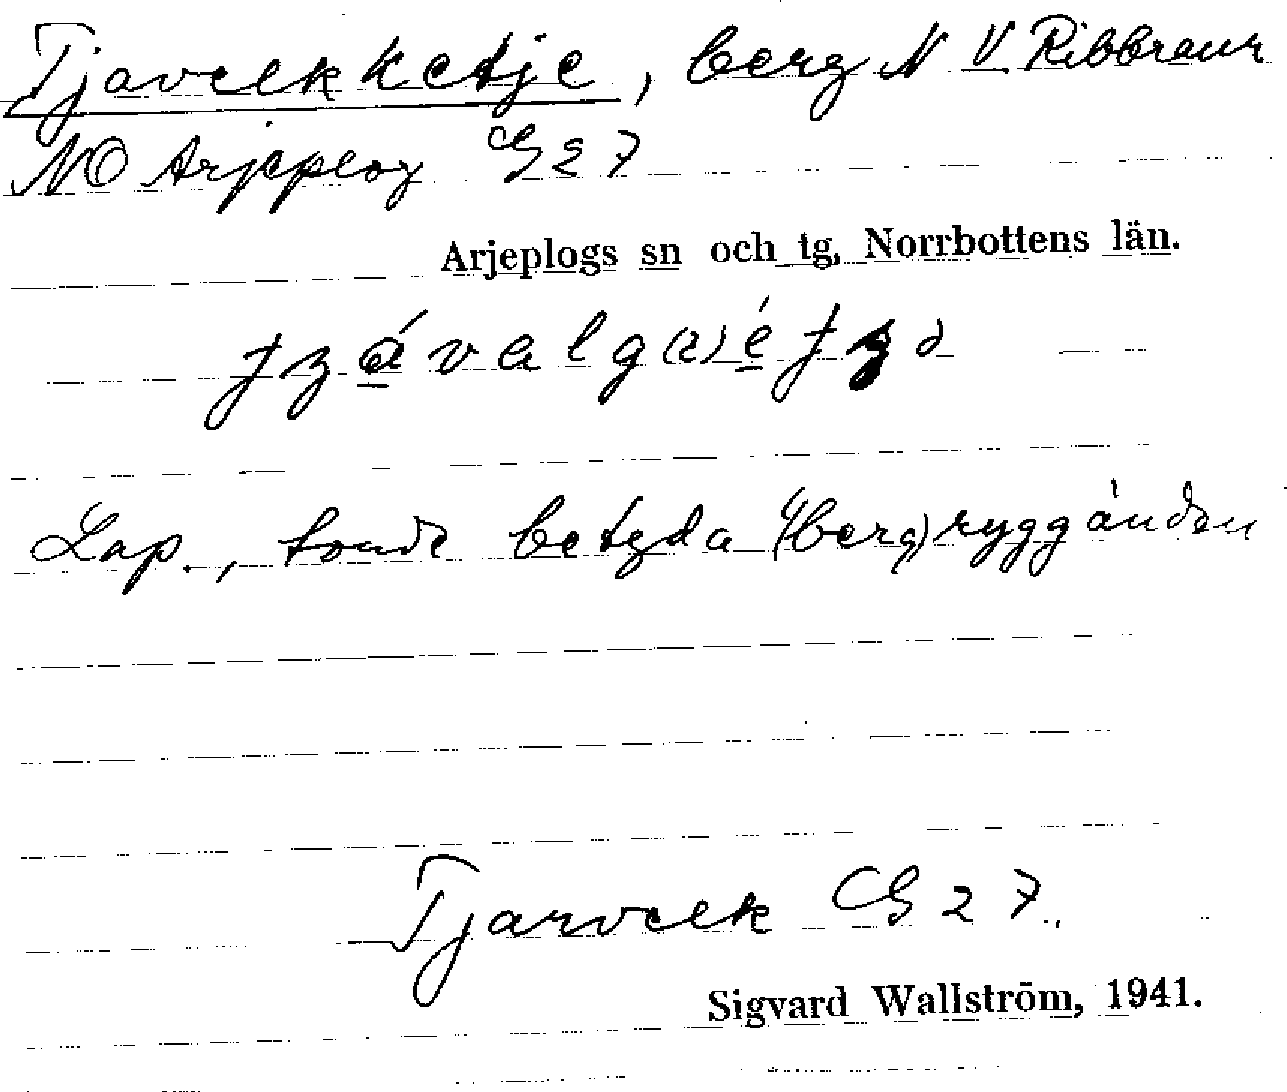 Tjavelkketje, berg N V Ribbraur
NO Arjeplog G 27
Arjeplogs sn och tg, Norrbottens län.
Lap., torde betyda "(berg)ryggänden
Tjarvelk G 27.
Sigvard Wallström, 1941.